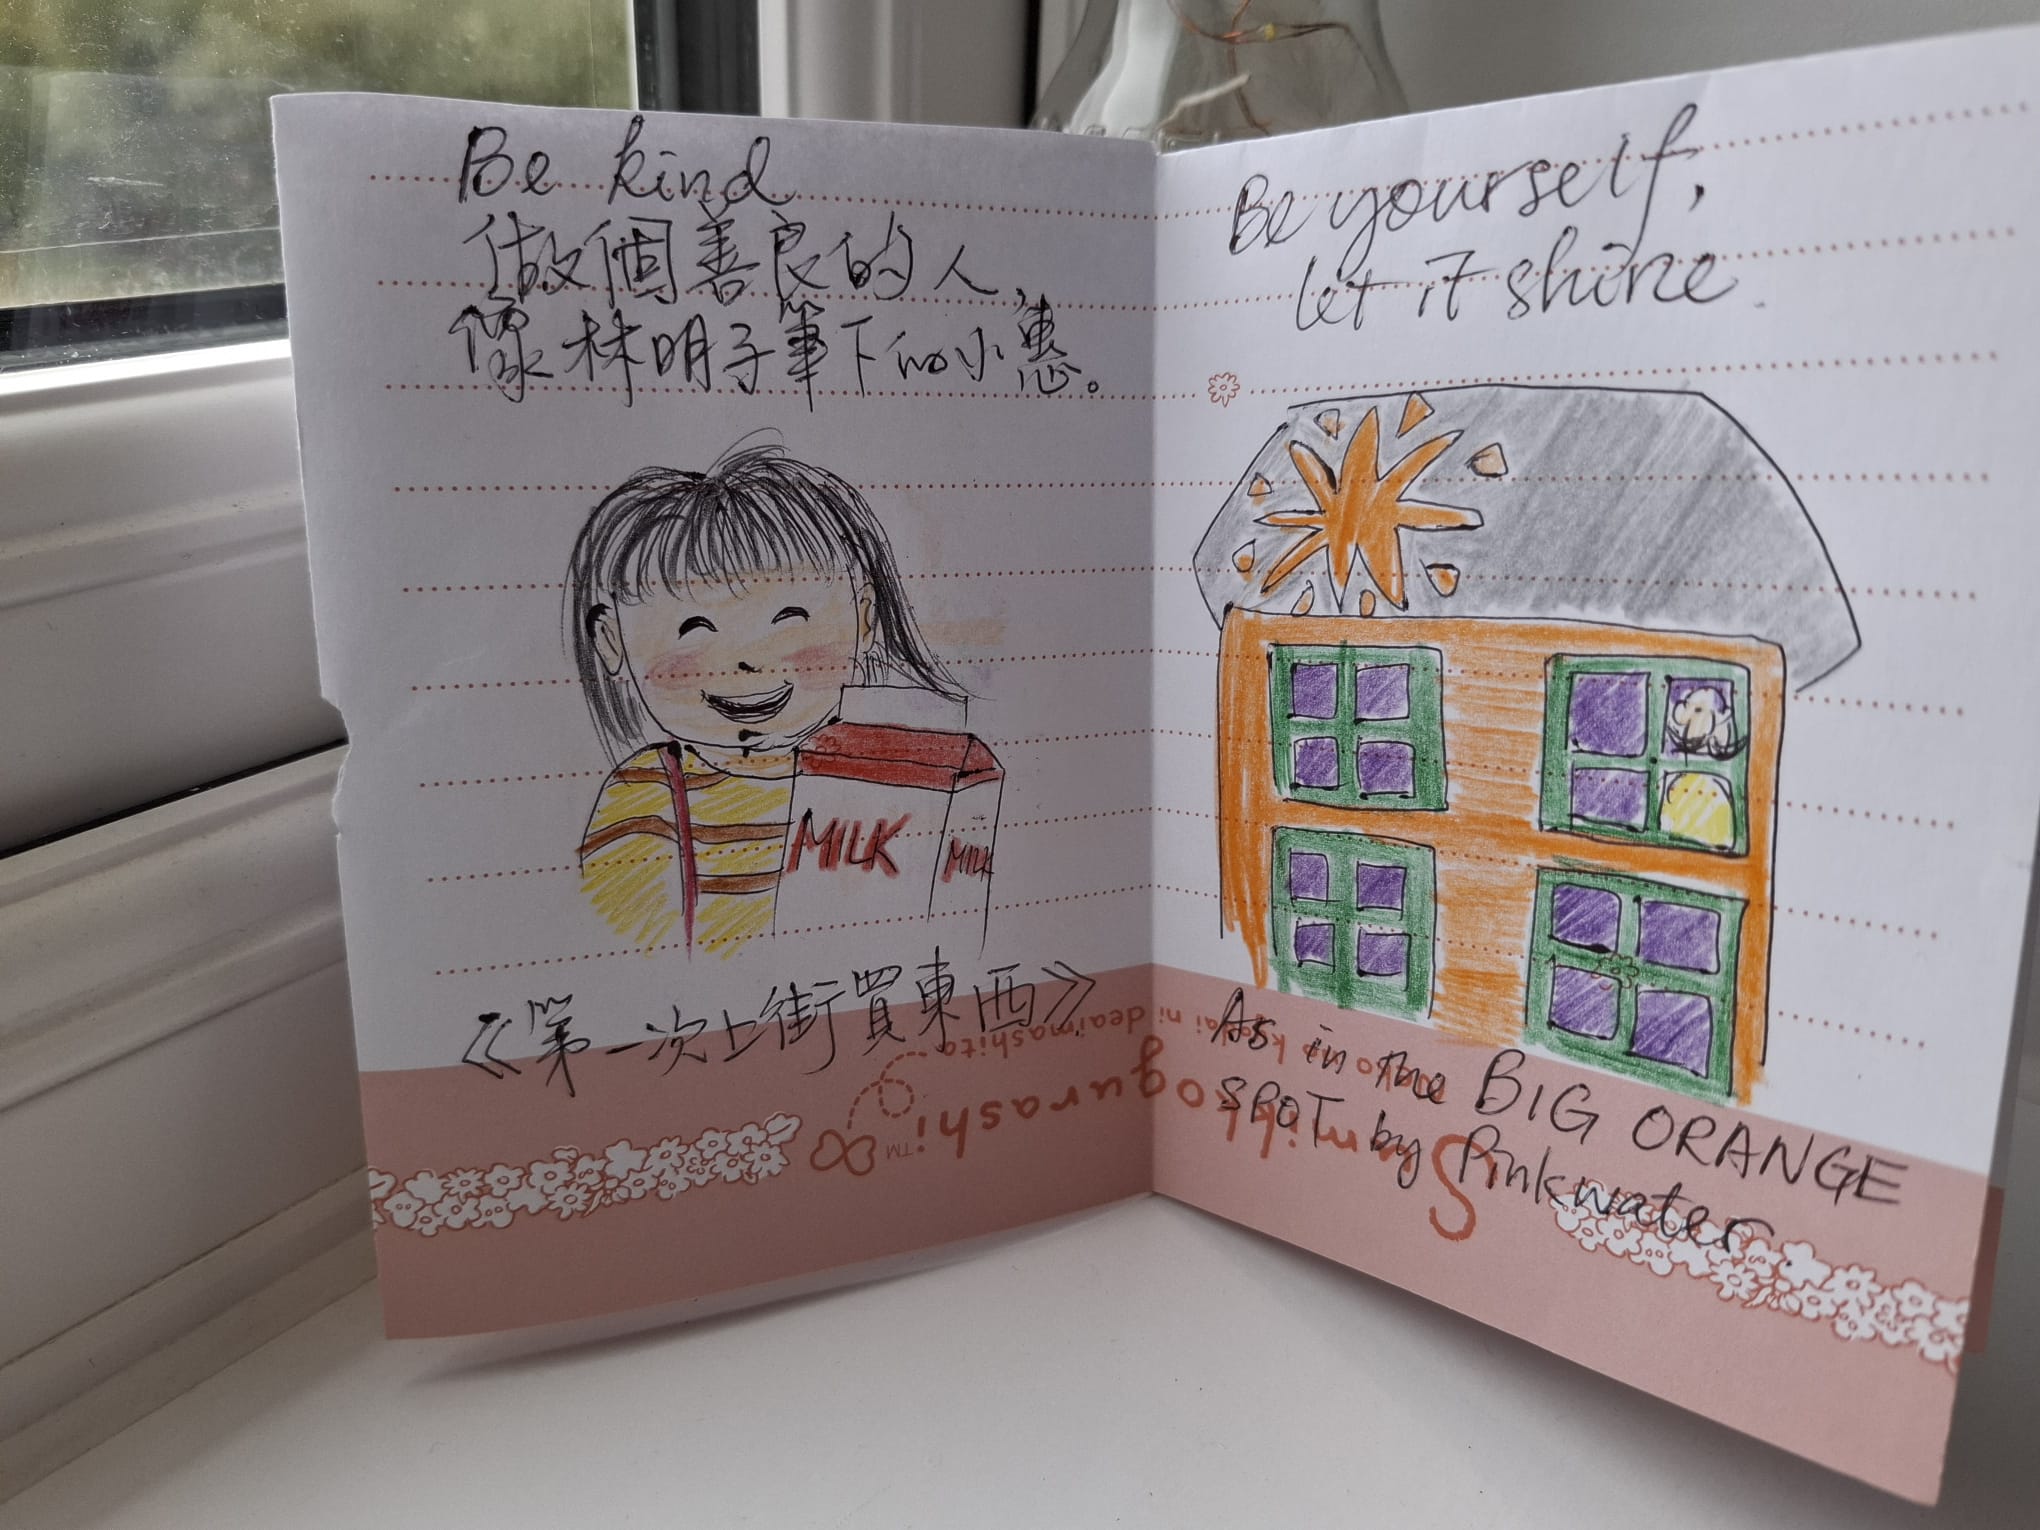 Be kind
做個善良的人，
像林明子筆下的小惠。
MILK
MILK
《第一次上街買東西》
Be yourself,
let it shine.
As in the BIG ORANGE
SPOT by Pinkwater
Sumikkogurashi™
ni deaimashita